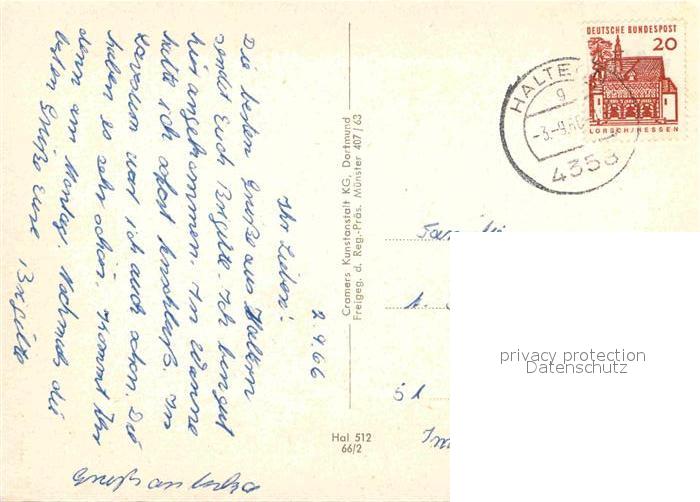 2.9.66
Ihr Lieben!
Die besten Grüße aus Haltern
sendet Euch Brigitte. Ich bin gut
hier angekommen. In Wanne
hatte ich sofort Anschluß. Im
war ich auch schon. Die
haben es sehr schön. Kommt Ihr
denn am Montag. Nochmals die
besten Grüße Eure Brigitte
Gruß an
Cramers Kunstanstalt KG, Dortmund
Freigeg. d. Reg.-Präs. Münster 407/63
Hal 512
66/2
DEUTSCHE BUNDESPOST
20
LORSCH/HESSEN
HALTE
g
-3.-9.66
4358
privacy protection
Datenschutz